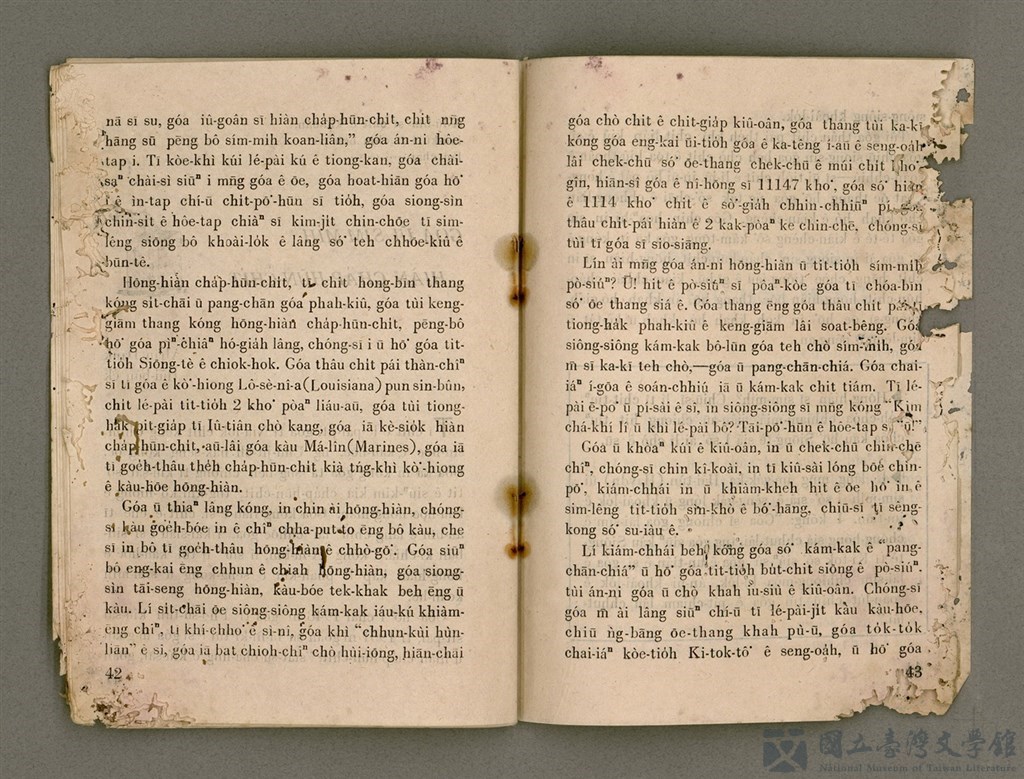 nā sī su, góa iû-goân sī hiàn cha̍p-hūn-chit, chit nn̄g
hāng sū pēng bô sím-mih koan-liân,” góa án-ni hôe-
tap i. Tī kòe-khì kúi lé-pài kú ê tiong-kan, góa chài-
saⁿ chài-sì siūⁿ i mn̄g góa ê ōe, góa hoat-hiān góa hō͘
i ê ìn-tap chí-ū chi̍t-pō͘-hūn sī tio̍h, góa siong-sìn
chin-si̍t ê hôe-tap chiàⁿ sī kim-ji̍t chin-chōe tī sim-
lêng siōng bô khoài-lo̍k ê lâng só͘ teh chhōe-kiû ê
būn-tê.
Hōng-hiàn cha̍p-hūn-chit, tī chit hong-bīn thang
kóng si̍t-chāi ū pang-chān góa phah-kiû, góa tùi keng-
giām thang kóng hōng-hiàn cha̍p-hūn-chit, pēng-bô
hō͘ góa pìⁿ-chiâⁿ hó-gia̍h lâng, chóng-sī i ū hō͘ góa tit-
tio̍h Siōng-tè ê chiok-hok. Góa thâu chi̍t pái thàn-chîⁿ
sī tī góa ê kò͘-hiong Lō-sè-ni-a (Louisiana) pun sin-bûn,
chi̍t lé-pài tit-tio̍h 2 kho͘ pòaⁿ liáu-āu, góa tùi tiong-
ha̍k pit-gia̍p tī Iû-tiân chò kang, góa iā kè-sio̍k hiàn
cha̍p-hūn-chit, āu-lâi góa kàu Má-lîn (Marines), góa iā
tī goe̍h-thâu the̍h cha̍p-hūn-chit kià tńg-khì kò͘-hiong
ê kàu-hōe hōng-hiàn.
Góa ū thiaⁿ lâng kóng, in chin ài hōng-hiàn, chóng-
sī kàu goe̍h-bóe in ê chîⁿ chha-put-to ēng bô kàu, che
sī in bô tī goe̍h-thâu hōng-hiàn ê chhò-gō͘. Góa siūⁿ
bô eng-kai ēng chhun ê chiah hōng-hiàn, góa siong-
sìn tāi-seng hōng-hiàn, kàu-bóe tek-khak beh ēng ū
kàu. Lí si̍t-chāi ōe siông-siông kám-kak iáu-kú khiàm-
ēng chîⁿ, tī khí-chho͘ ê sì-nî, góa khì “chhun-kùi hùn-
liān” ê sî, góa iā bat chioh-chîⁿ chò hùi-iōng, hiān-chāi
42
góa chò chi̍t ê chit-gia̍p kiû-oân, góa thang tùi ka-kī
kóng góa eng-kai ūi-tio̍h góa ê ka-têng i-āu ê seng-oa̍h
lâi chek-chū só͘ ōe-thang chek-chū ê múi chi̍t kho͘-
gîn, hiān-sî góa ê nî-hōng sī 11147 kho͘, góa só͘ hiàn
ê 1114 kho͘ chit ê sò͘-gia̍h chhin-chhiūⁿ pí góa
thâu chi̍t-pái hiàn ê 2 kak-pòaⁿ ke chin-chē, chóng-sī
tùi tī góa sī sio-siāng.
Lín ài mn̄g góa án-ni hōng-hiàn ū tit-tio̍h sím-mih
pò-siúⁿ? Ū! hit ê pò-siúⁿ sī pôaⁿ-kòe góa tī chóa-bīn
só͘ ōe thang siá ê. Góa thang ēng góa thâu chi̍t pái tī
tiong-ha̍k phah-kiû ê keng-giām lâi soat-bêng. Góa
siông-siông kám-kak bô-lūn góa teh chò sím-mih, góa
m̄ sī ka-kī teh chò,—góa ū pang-chān-chiá. Góa chai-
iáⁿ í-gōa ê soán-chhiú iā ū kám-kak chit tiám. Tī lé-
pài ē-po͘ ū pí-sài ê sî, in siông-siông sī mn̄g kóng “Kim
chá-khí lí ū khì lé-pài bô? Tāi-pō͘-hūn ê hôe-tap sī “ū!”
Góa ū khòaⁿ kúi ê kiû-oân, in ū chek-chū chin-chē
chîⁿ, chóng-sī chin kî-koài, in tī kiû-sài lóng bōe chìn-
pō͘, kiám-chhái in ū khiàm-kheh hit ê ōe hō͘ in ê
sim-lêng tit-tio̍h sin-khò ê bó͘-hāng, chiū-sī tì sêng-
kong só͘ su-iàu ê.
Lí kiám-chhái beh kóng góa só͘ kám-kak ê “pang-
chān-chiá” ū hō͘ góa tit-tio̍h bu̍t-chit siōng ê pò-siúⁿ.
tùi án-ni góa ū chò khah iu-siù ê kiû-oân. Chóng-sī
góa m̄ ài lâng siūⁿ chí-ū tī lé-pài-ji̍t kàu kàu-hōe,
chiū n̂g-bāng ōe-thang khah pù-ū, góa to̍k-to̍k
chai-iáⁿ kòe-tio̍h Ki-tok-tô͘ ê seng-oa̍h, ū hō͘ góa
43
國立臺灣文學館
National Museum of Taiwan Literature